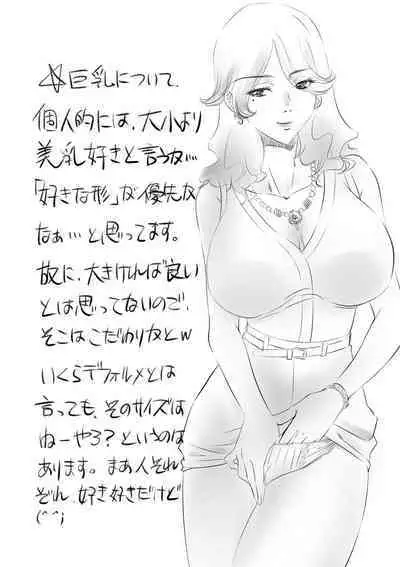 ☆巨乳について.
個人的には、大小より
美乳好きと言うか…
「好きな形」が優先かな
なぁ…と思ってます。
故に、大きければ良い
とは思ってないので、
そこはこだわりかとw
いくらデフォルメとは
言っても、そのサイズは
ねーやろ?というのは
あります。まあ人それ
ぞれ、好き好きだけど
(^^;